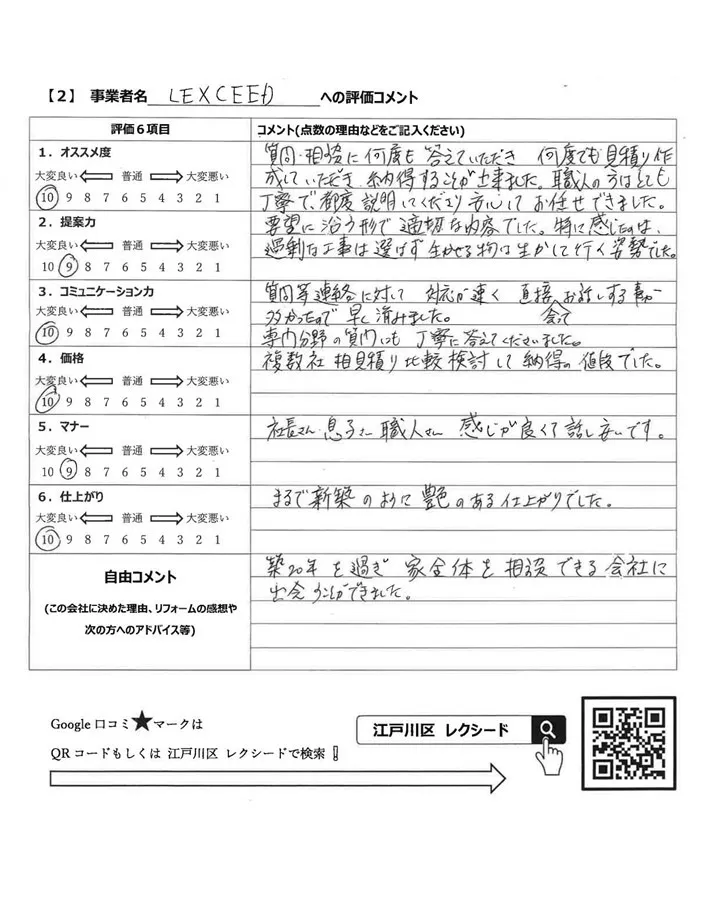 【2】 事業者名 LEXCEED への評価コメント
評価6項目 コメント(点数の理由などをご記入ください)
1．オススメ度
大変良い 普通 大変悪い
10 9 8 7 6 5 4 3 2 1
質問・相談に何度も答えていただき 何度でも見積り作
成していただき 納得することが出来ました。職人の方はとても
丁寧で、都度説明してくださり安心してお任せできました。
2．提案力
大変良い 普通 大変悪い
10 9 8 7 6 5 4 3 2 1
要望に沿う形で適切な内容でした。特に感じたのは、
過剰な工事は選ばず 生かせる物は生かして行く姿勢でした。
3．コミュニケーション力
大変良い 普通 大変悪い
10 9 8 7 6 5 4 3 2 1
質問等連絡に対して 対応が速く 直接会ってお話しする事が
多かったので 早く済みました。
専門分野の質問にも 丁寧に答えてくださいました。
4．価格
大変良い 普通 大変悪い
10 9 8 7 6 5 4 3 2 1
複数社 相見積り比較検討して 納得の値段でした。
5．マナー
大変良い 普通 大変悪い
10 9 8 7 6 5 4 3 2 1
社長さん 息子さん 職人さん 感じが良くて話し安いです。
6．仕上がり
大変良い 普通 大変悪い
10 9 8 7 6 5 4 3 2 1
まるで新築のように艶のある仕上がりでした。
自由コメント
(この会社に決めた理由、リフォームの感想や
次の方へのアドバイス等)
築20年を過ぎ 家全体を相談できる会社に
出会うことができました。
Google 口コミ★マークは
QRコードもしくは 江戸川区 レクシードで検索！
江戸川区 レクシード